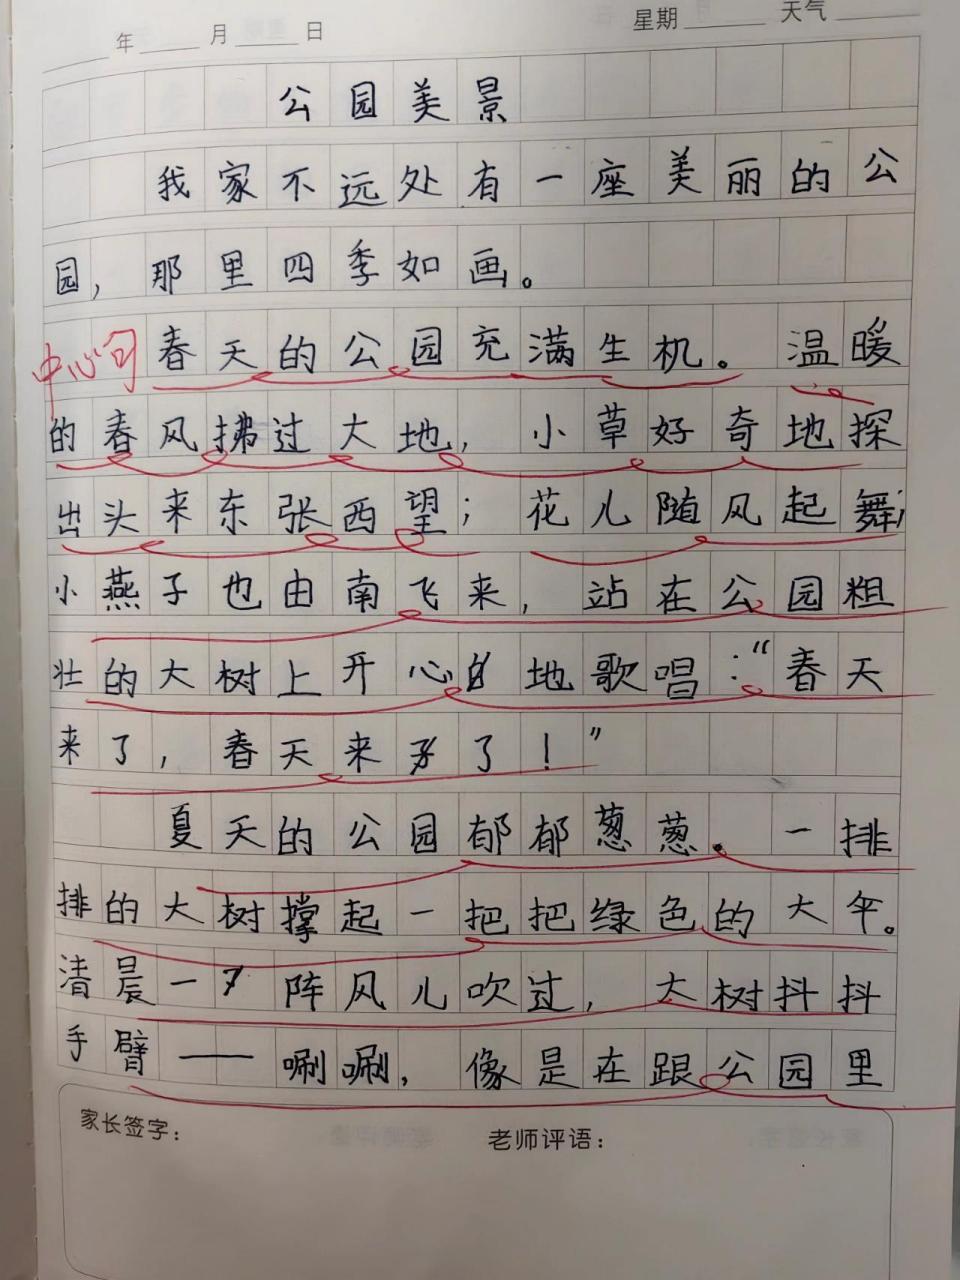 年 月 日 星期 天气
公园美景
我家不远处有一座美丽的公
园，那里四季如画。
中心句
春天的公园充满生机。温暖
的春风拂过大地，小草好奇地探
出头来东张西望；花儿随风起舞；
小燕子也由南飞来，站在公园粗
壮的大树上开心地歌唱：“春天
来了，春天来了！”
夏天的公园郁郁葱葱。一排
排的大树撑起一把把绿色的大伞。
清晨一阵风儿吹过，大树抖抖
手臂——唰唰，像是在跟公园里
家长签字： 老师评语：